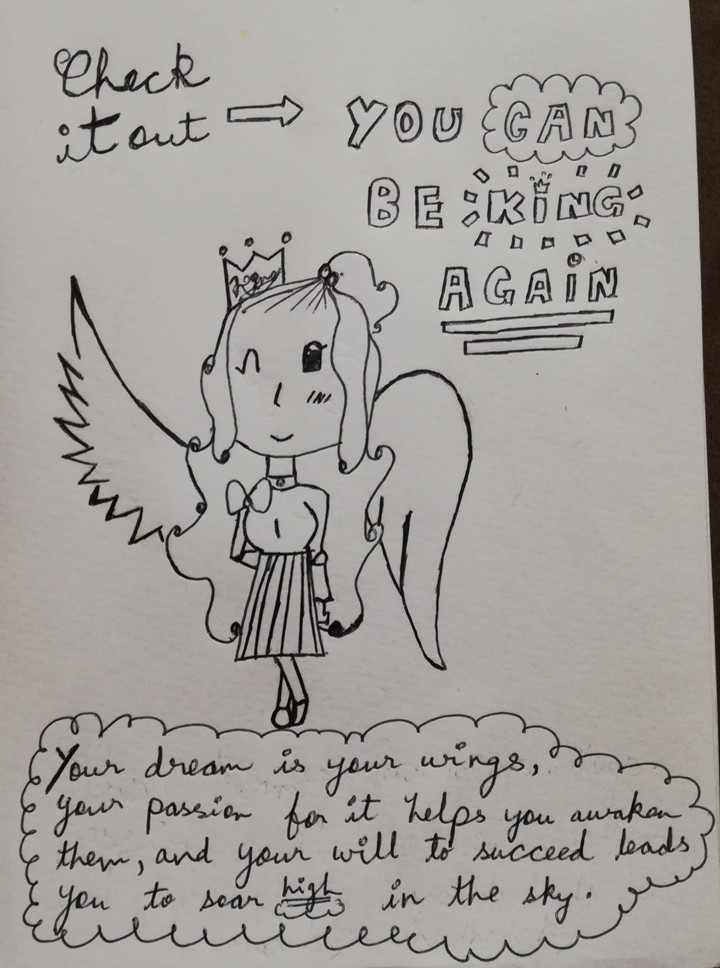 Check
it out
YOU CAN
BE KiNG
AGAiN
King
Your dream is your wings,
your passion for it helps you awaken
them, and your will to succeed leads
you to soar high in the sky.